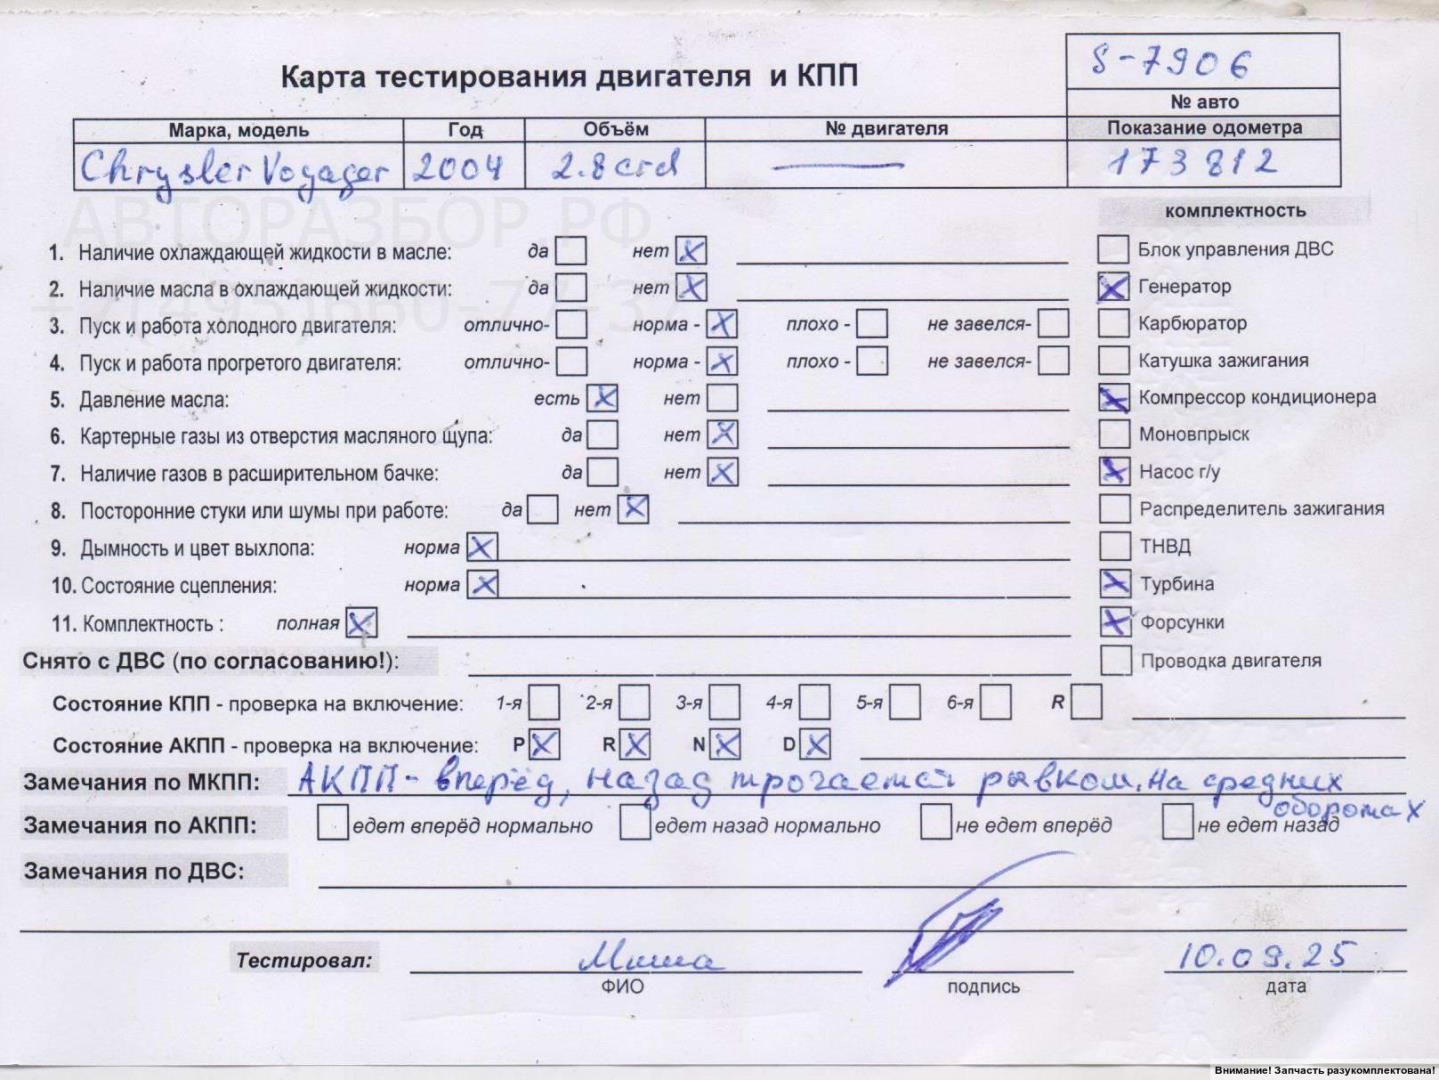 S-7906
Карта тестирования двигателя и КПП
№ авто
Марка, модель Год Объём № двигателя Показание одометра
Chrysler Voyager 2004 2.8 crd — 173812
АВТОРАЗБОР.РФ
комплектность
1. Наличие охлаждающей жидкости в масле: да нет Блок управления ДВС
2. Наличие масла в охлаждающей жидкости: да нет Генератор
3. Пуск и работа холодного двигателя: отлично- норма - плохо - не завелся- Карбюратор
4. Пуск и работа прогретого двигателя: отлично- норма - плохо - не завелся- Катушка зажигания
5. Давление масла: есть нет Компрессор кондиционера
6. Картерные газы из отверстия масляного щупа: да нет Моновпрыск
7. Наличие газов в расширительном бачке: да нет Насос г/у
8. Посторонние стуки или шумы при работе: да нет Распределитель зажигания
9. Дымность и цвет выхлопа: норма ТНВД
10. Состояние сцепления: норма Турбина
11. Комплектность : полная Форсунки
Снято с ДВС (по согласованию!): Проводка двигателя
Состояние КПП - проверка на включение: 1-я 2-я 3-я 4-я 5-я 6-я R
Состояние АКПП - проверка на включение: P R N D
Замечания по МКПП: АКПП - вперёд, назад трогается рывком. на средних
оборотах
Замечания по АКПП: едет вперёд нормально едет назад нормально не едет вперёд не едет назад
Замечания по ДВС:
Тестировал: Миша 10.09.25
ФИО подпись дата
Внимание! Запчасть разукомплектована!